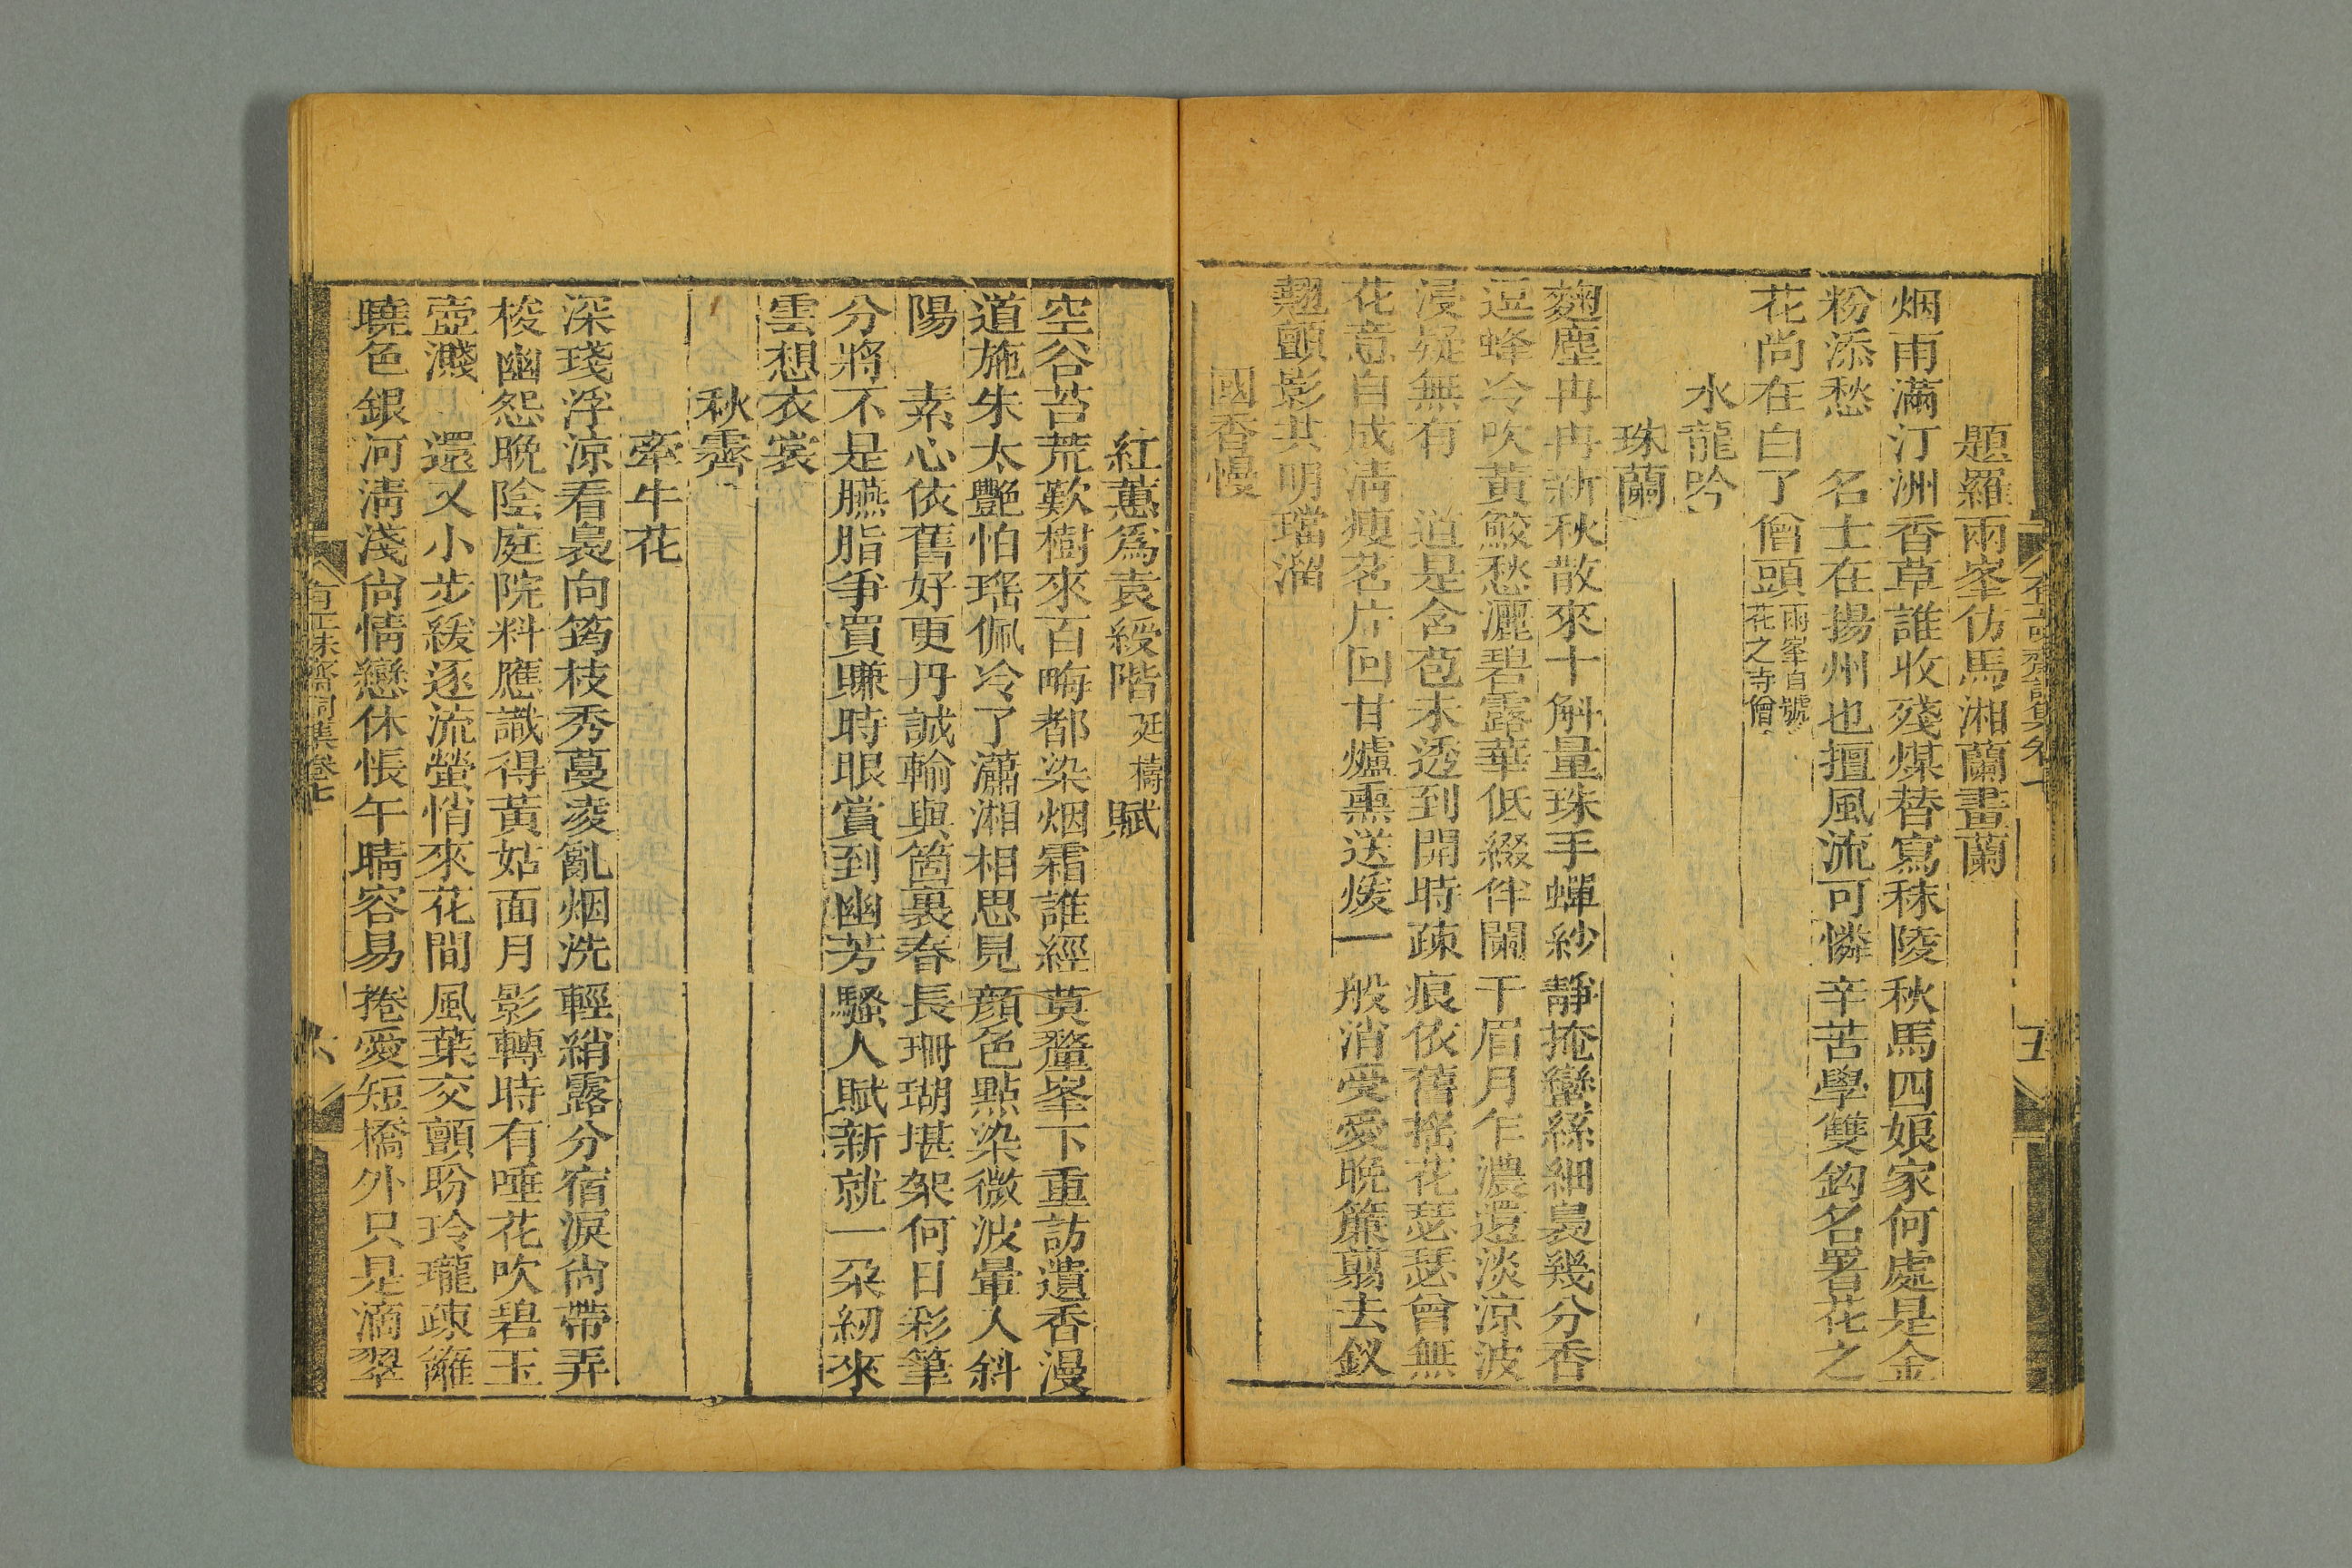 題羅雨峯仿馬湘蘭畫蘭
烟雨滿汀洲香草誰收殘煤替寫秣陵秋馬四娘家何處是金
粉添愁　名士在揚州也擅風流可憐辛苦學雙鈎名署花之
花尚在白了僧頭雨峯自號花之寺僧
水龍吟
珠蘭
麴塵冉冉新秋散來十斛量珠手蟬紗靜掩蠻絲細裊幾分香
逗蜂冷吹黃鮫愁灑碧露華低綴伴闌干眉月乍濃還淡涼波
浸疑無有　道是含苞未透到開時疎痕依舊搖花瑟瑟曾無
花意自成清瘦茗片回甘爐熏送煖一般消受愛晚簾翦去釵
翹顫影共明璫溜
國香慢
紅蕙為袁綬階廷檮賦
空谷苔荒歎樹來百畮都染烟霜誰經莫釐峯下重訪遺香漫
道施朱太豔怕瑤佩冷了瀟湘相思見顏色點染微波暈人斜
陽　素心依舊好更丹誠輸與箇裏春長珊瑚堪架何日彩筆
分將不是臙脂爭買賺時眼賞到幽芳騷人賦新就一朶紉來
雲想衣裳
秋霽
牽牛花
深琖浮涼看裊向筠枝秀蔓凌亂烟洗輕綃露分宿淚尙帶弄
梭幽怨晚陰庭院料應識得黃姑面月影轉時有唾花吹碧玉
壺濺　還又小步緩逐流螢悄來花間風葉交顫盼玲瓏疎籬
曉色銀河清淺尙情戀休悵午晴容易捲愛短橋外只是滴翠
有正味齋詞集卷七
六
有正味齋詞集卷七
五